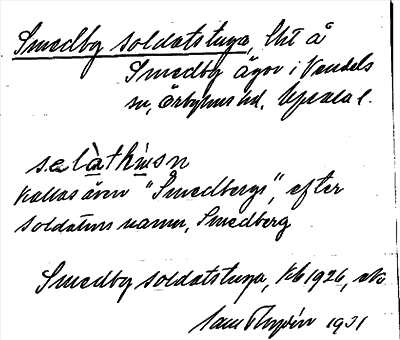 Smedby soldatstuga, lht å
Smedby ägor i Vendels
sn, Örbyhus hd, Uppsala l.
sɷlàtḥisn
Kallas även "Smedbergs", efter
soldatens namn, Smedberg
Smedby soldatstuga, Kb 1926, etc
1931